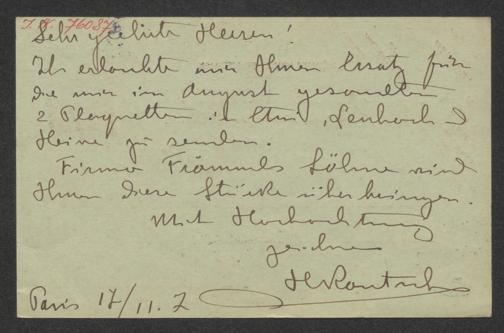 J. N. 76087
Sehr geehrte Herren!
Ich erlaubte mir Ihnen Ersatz für
die mir im August gesandten
2 Plaquetten in Etui, Lenbach u
Heine zu senden.
Firma Frömmels Söhne wird
Ihnen diese Stücke überbringen.
Mit Hochachtung
zeichne
H Kautsch
Paris 17/11. 7